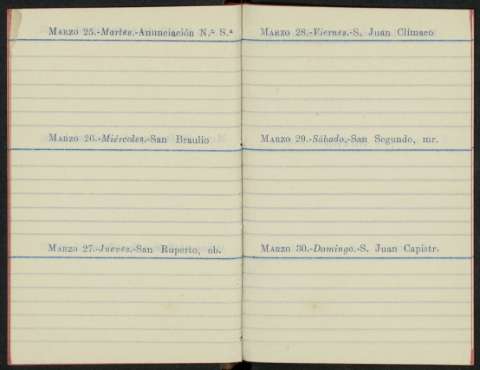 Marzo 25.-Martes.-Anunciación N.ª S.ª
Marzo 26.-Miércoles.-San Braulio
Marzo 27.-Jueves.-San Ruperto, ob.
Marzo 28.-Viernes.-S. Juan Clímaco
Marzo 29.-Sábado.-San Segundo, mr.
Marzo 30.-Domingo.-S. Juan Capistr.